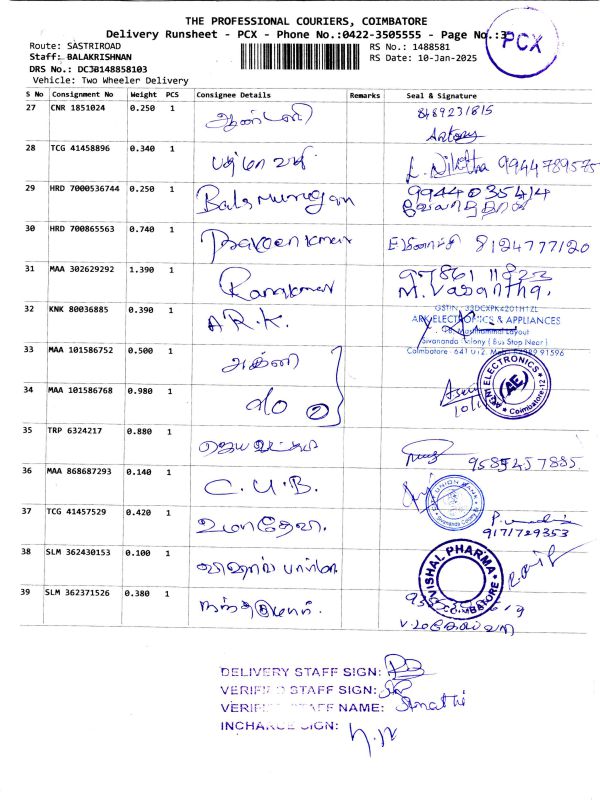 THE PROFESSIONAL COURIERS, COIMBATORE
Delivery Runsheet - PCX - Phone No.:0422-3505555 - Page No.:3
PCX
Route: SASTRIROAD
RS No.: 1488581
Staff: BALAKRISHNAN
RS Date: 10-Jan-2025
DRS No.: DCJB148858103
Vehicle: Two Wheeler Delivery
S No Consignment No Weight PCS Consignee Details Remarks Seal & Signature
27 CNR 1851024 0.250 1 ஆண்டனி 8489231815
Antony
28 TCG 41458896 0.340 1 பத்மாவதி L. Nikitha 9944789575
29 HRD 7000536744 0.250 1 Bala Murugan 9944035414
வேலாத்தாள்
30 HRD 700865563 0.740 1 Praveen Kumar மீனாட்சி 8124777120
31 MAA 302629292 1.390 1 Ramkumar 97861 11822
M. Vasantha.
32 KNK 80036885 0.390 1 A.R.K. GSTIN: 33DCXPK4201H1ZL
ARK ELECTRONICS & APPLIANCES
Sivananda Colony (Bus Stop Near)
Coimbatore - 641 012.
33 MAA 101586752 0.500 1 அக்னி
AGNI ELECTRONICS
(AE)
Coimbatore-12
34 MAA 101586768 0.980 1 %o 2
35 TRP 6324217 0.880 1 9585457885
36 MAA 868687293 0.140 1 C.U.B.
CITY UNION BANK
37 TCG 41457529 0.420 1 உமாதேவி.
9171729353
38 SLM 362430153 0.100 1 விஷால் பார்மா
VISHAL PHARMA
COIMBATORE
39 SLM 362371526 0.380 1 நந்தகுமார்.
DELIVERY STAFF SIGN:
VERIFIED STAFF SIGN:
VERIFIED STAFF NAME:
INCHARGE SIGN: